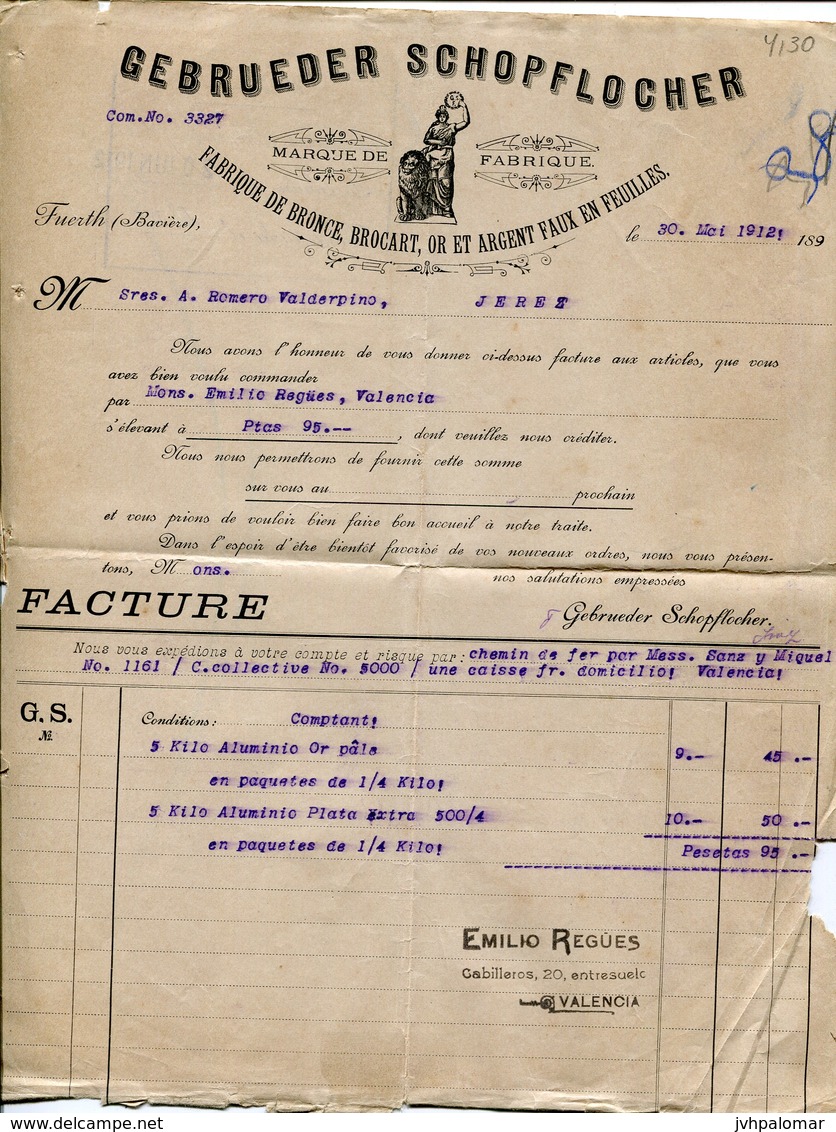 4,30
GEBRUEDER SCHOPFLOCHER
Com.No. 3327
MARQUE DE FABRIQUE.
FABRIQUE DE BRONCE, BROCART, OR ET ARGENT FAUX EN FEUILLES.
Fuerth (Bavière), le 30. Mai 1912! 189
M Sres. A. Romero Valderpino, JEREZ
Nous avons l'honneur de vous donner ci-dessus facture aux articles, que vous
avez bien voulu commander
par Mons. Emilio Regües, Valencia
s'élevant à Ptas 95.-- , dont veuillez nous créditer.
Nous nous permettrons de fournir cette somme
sur vous au prochain
et vous prions de vouloir bien faire bon accueil à notre traite.
Dans l'espoir d'être bientôt favorisé de vos nouveaux ordres, nous vous présen-
tons, Mons. nos salutations empressées
FACTURE Gebrueder Schopflocher.
Nous vous expédions à votre compte et risque par: chemin de fer par Mess. Sanz y Miquel
No. 1161 / C.collective No. 5000 / une caisse fr. domicilio! Valencia!
G. S. Conditions: Comptant!
No.
5 Kilo Aluminio Or pâle 9.- 45 .-
en paquetes de 1/4 Kilo!
5 Kilo Aluminio Plata Extra 500/4 10.- 50 .-
en paquetes de 1/4 Kilo! Pesetas 95 .-
EMILIO REGÜES
Cabilleros, 20, entresuelo
VALENCIA
delcampe.net
jvhpalomar